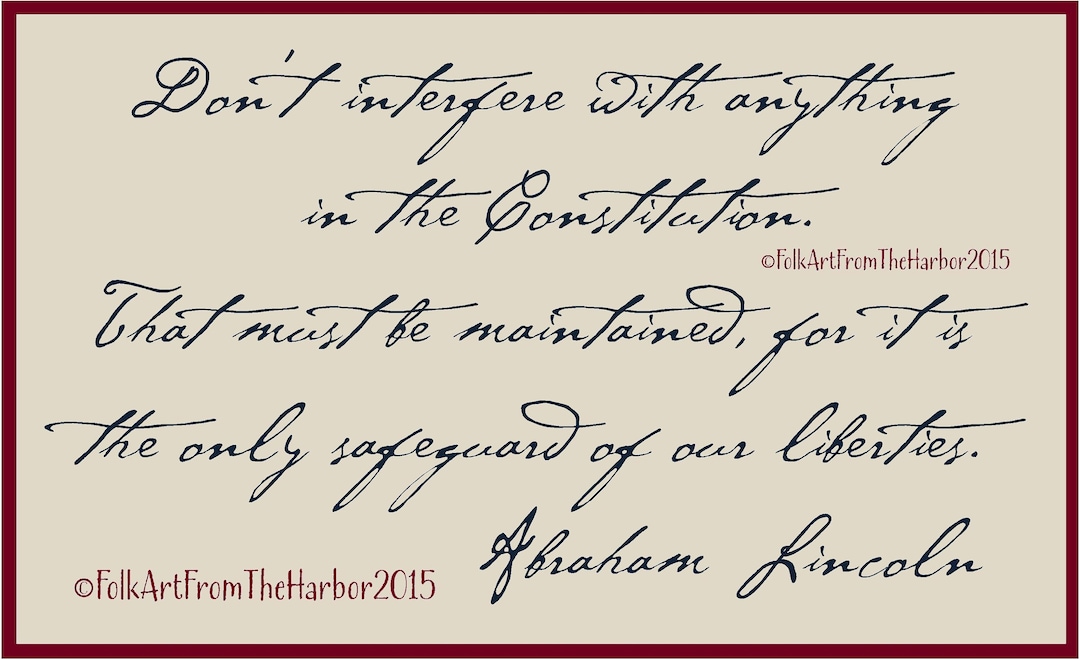 Don't interfere with anything
in the Constitution.
©FolkArtFromTheHarbor2015
That must be maintained, for it is
the only safeguard of our liberties.
Abraham Lincoln
©FolkArtFromTheHarbor2015